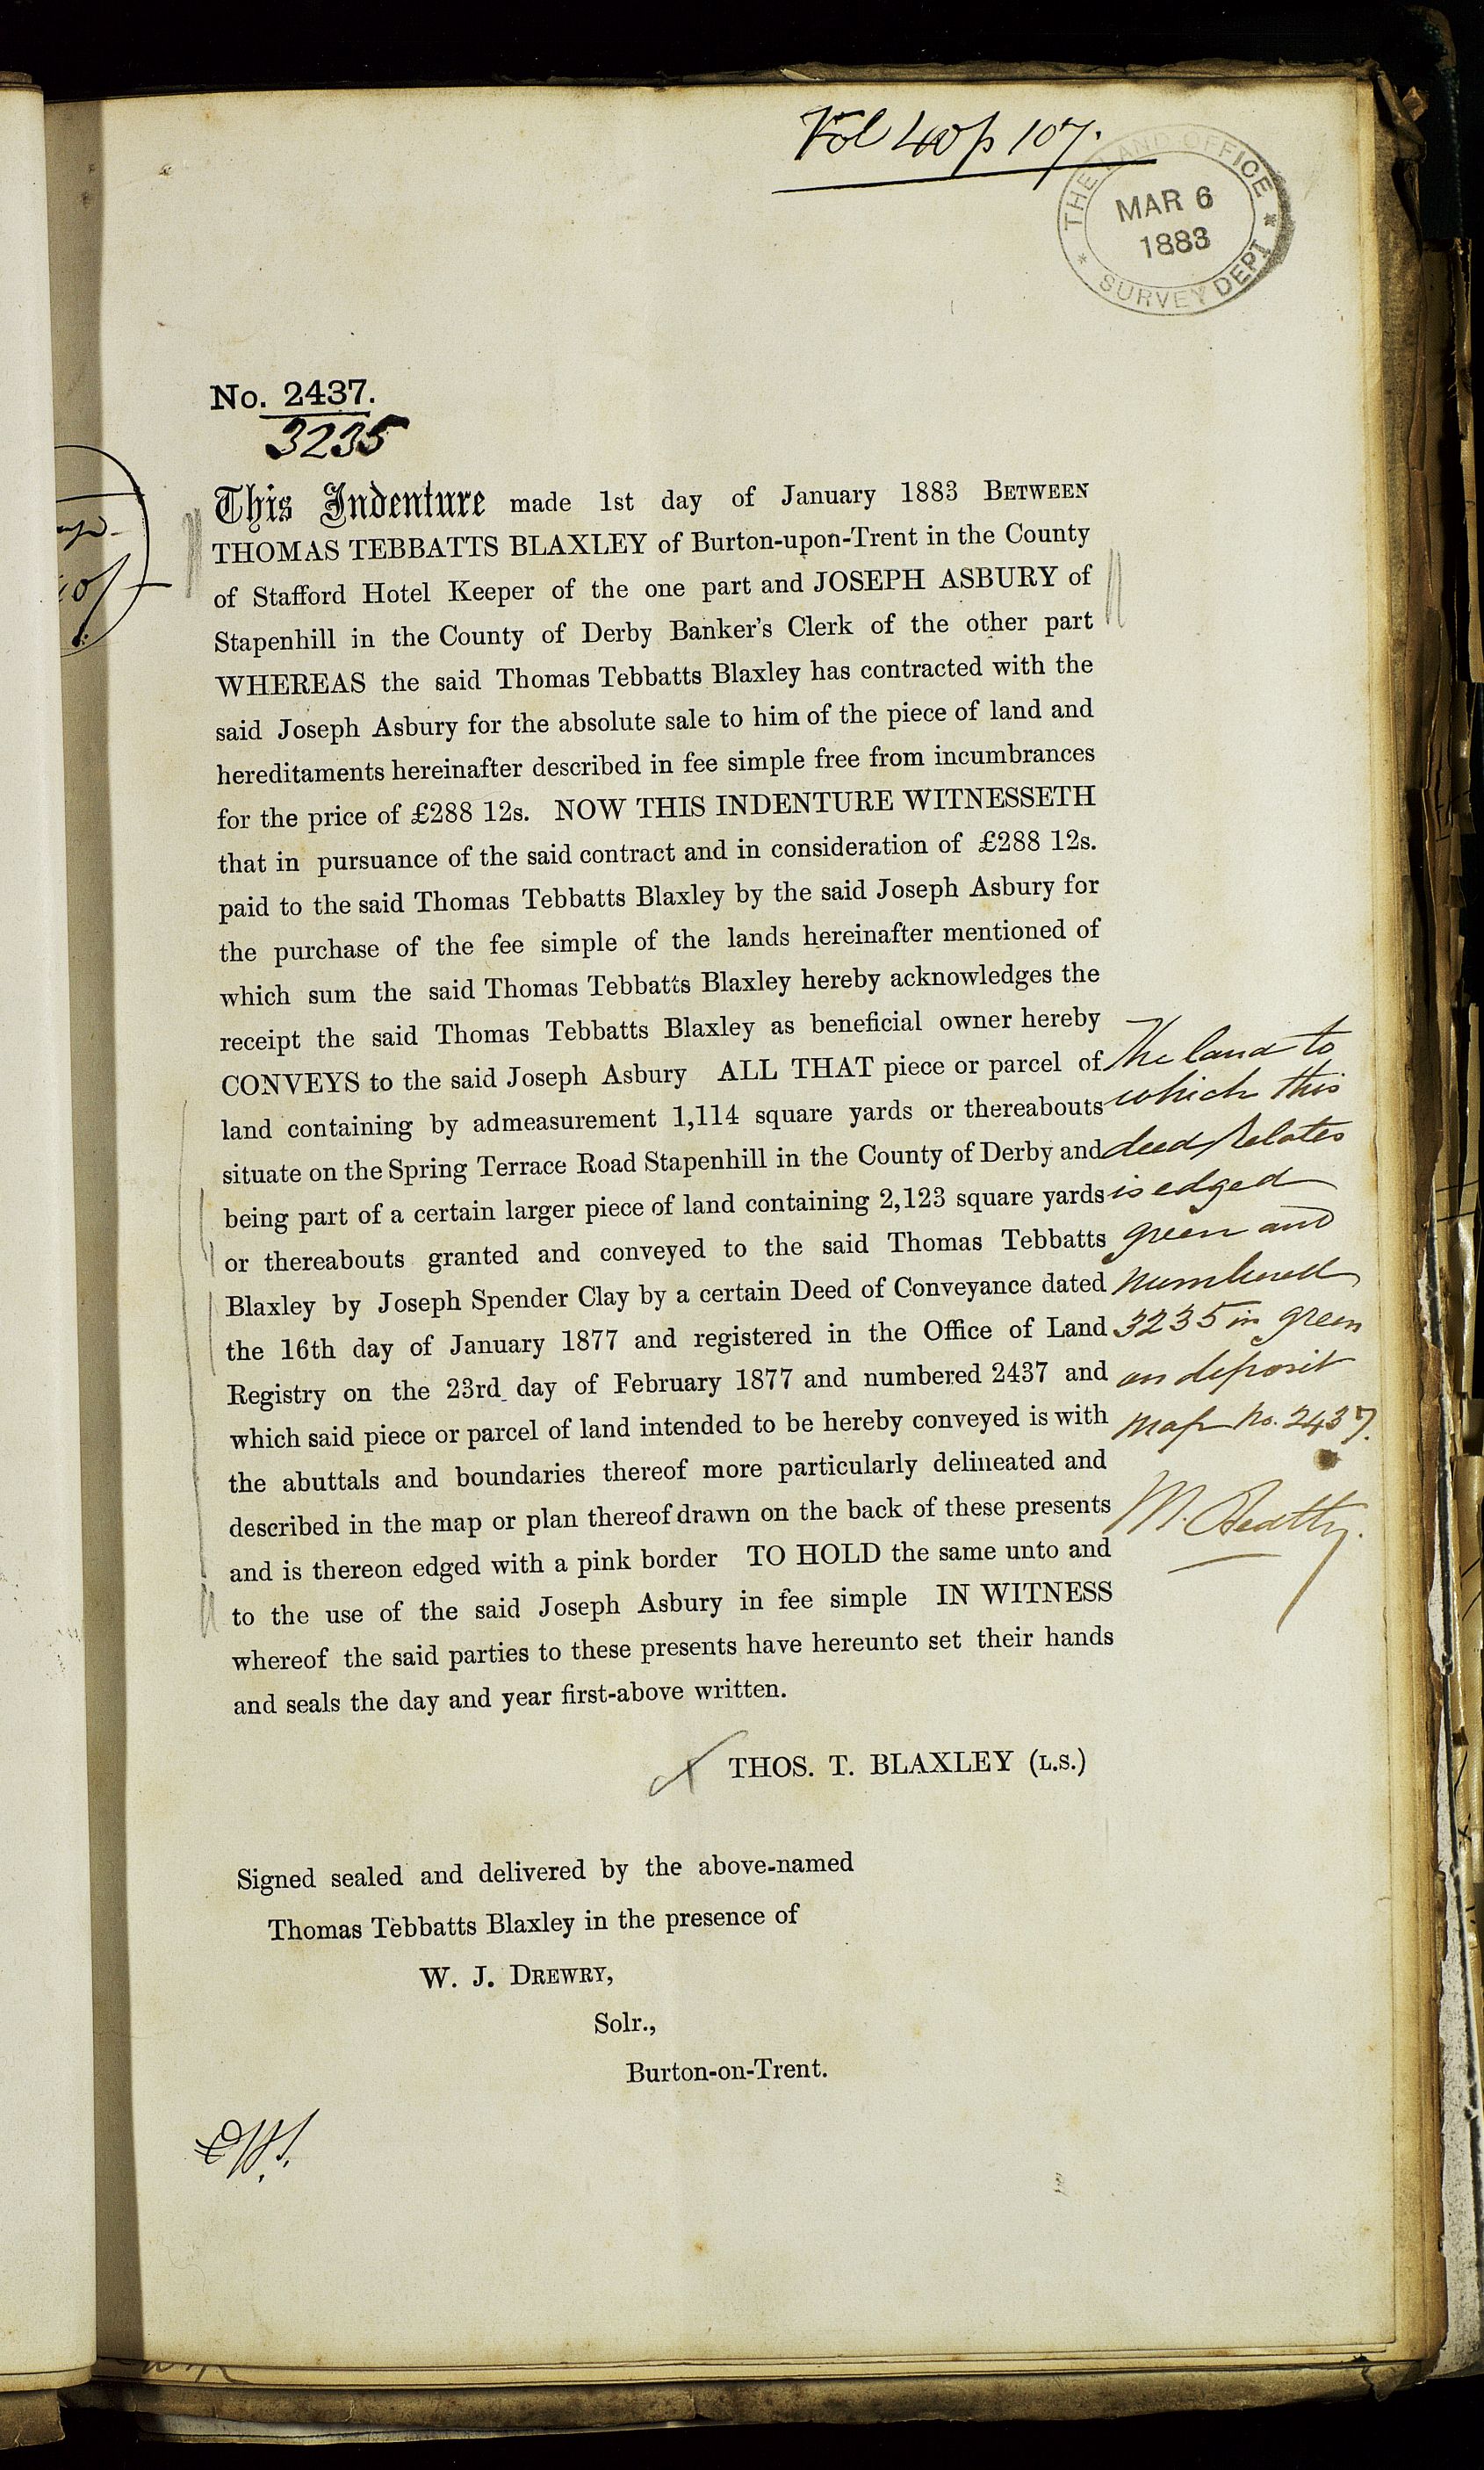 Vol 40 p 107.
THE LAND OFFICE
MAR 6
1883
* SURVEY DEPT *
No. 2437.
3235
This Indenture made 1st day of January 1883 BETWEEN
THOMAS TEBBATTS BLAXLEY of Burton-upon-Trent in the County
of Stafford Hotel Keeper of the one part and JOSEPH ASBURY of
Stapenhill in the County of Derby Banker's Clerk of the other part
WHEREAS the said Thomas Tebbatts Blaxley has contracted with the
said Joseph Asbury for the absolute sale to him of the piece of land and
hereditaments hereinafter described in fee simple free from incumbrances
for the price of £288 12s. NOW THIS INDENTURE WITNESSETH
that in pursuance of the said contract and in consideration of £288 12s.
paid to the said Thomas Tebbatts Blaxley by the said Joseph Asbury for
the purchase of the fee simple of the lands hereinafter mentioned of
which sum the said Thomas Tebbatts Blaxley hereby acknowledges the
receipt the said Thomas Tebbatts Blaxley as beneficial owner hereby
CONVEYS to the said Joseph Asbury ALL THAT piece or parcel of
land containing by admeasurement 1,114 square yards or thereabouts
situate on the Spring Terrace Road Stapenhill in the County of Derby and
being part of a certain larger piece of land containing 2,123 square yards
or thereabouts granted and conveyed to the said Thomas Tebbatts
Blaxley by Joseph Spender Clay by a certain Deed of Conveyance dated
the 16th day of January 1877 and registered in the Office of Land
Registry on the 23rd day of February 1877 and numbered 2437 and
which said piece or parcel of land intended to be hereby conveyed is with
the abuttals and boundaries thereof more particularly delineated and
described in the map or plan thereof drawn on the back of these presents
and is thereon edged with a pink border TO HOLD the same unto and
to the use of the said Joseph Asbury in fee simple IN WITNESS
whereof the said parties to these presents have hereunto set their hands
and seals the day and year first-above written.
The land to
which this
deed relates
is edged
green and
numbered
3235 in green
on deposit
map No. 2437.
M. Beatty.
THOS. T. BLAXLEY (L.S.)
Signed sealed and delivered by the above-named
Thomas Tebbatts Blaxley in the presence of
W. J. DREWRY,
Solr.,
Burton-on-Trent.